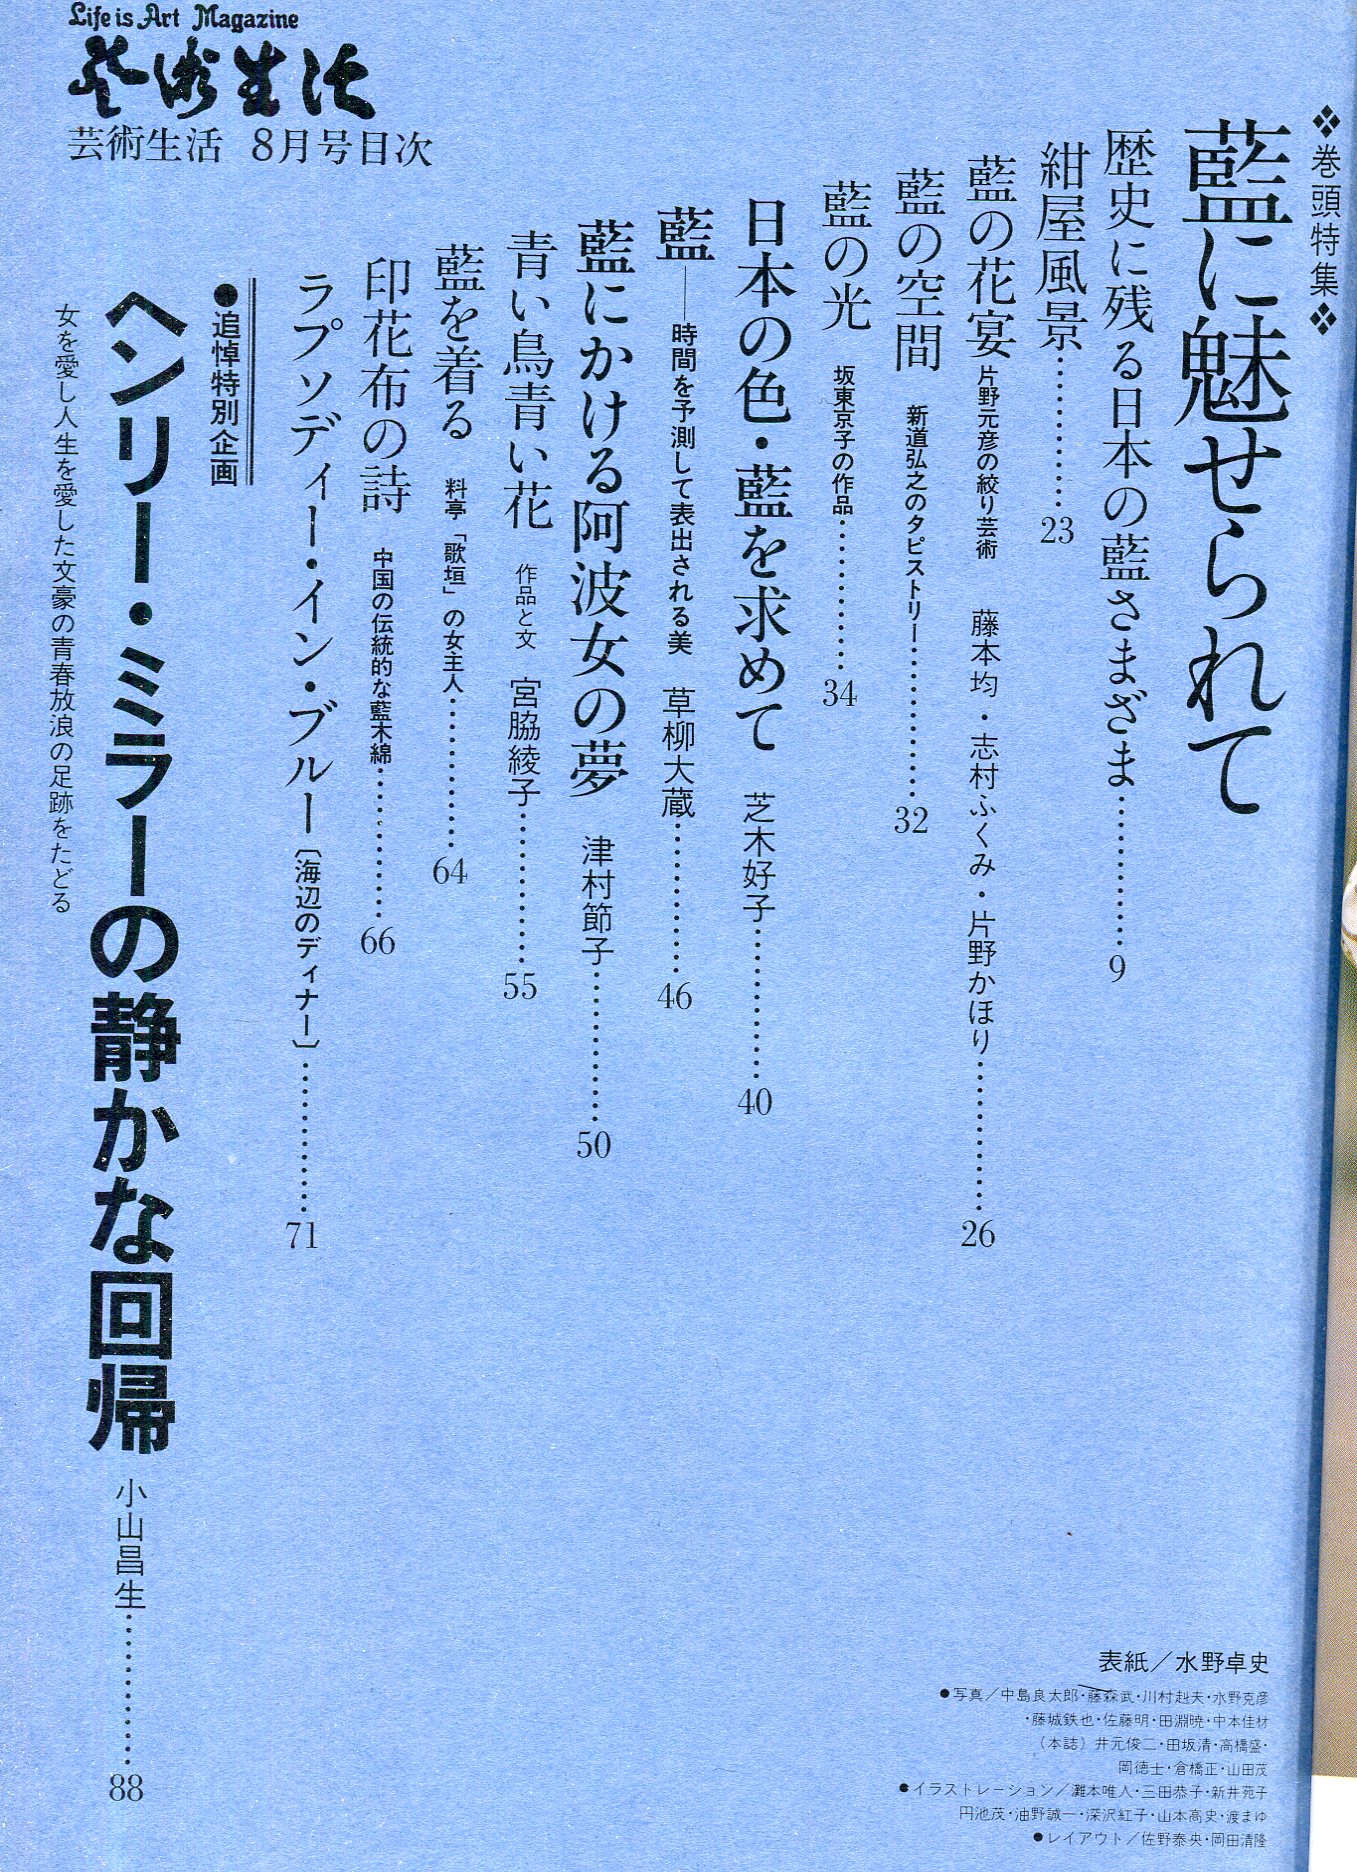 Life is Art Magazine
芸術生活
芸術生活 8月号目次
❖巻頭特集❖
藍に魅せられて
歴史に残る日本の藍さまざま…………9
紺屋風景…………23
藍の花宴 片野元彦の絞り芸術 藤本均・志村ふくみ・片野かほり…………26
藍の空間 新道弘之のタピストリー…………32
藍の光 坂東京子の作品…………34
日本の色・藍を求めて 芝木好子…………40
藍――時間を予測して表出される美 草柳大蔵…………46
藍にかける阿波女の夢 津村節子…………50
青い鳥青い花 作品と文 宮脇綾子…………55
藍を着る 料亭「歌垣」の女主人…………64
印花布の詩 中国の伝統的な藍木綿…………66
ラプソディー・イン・ブルー〔海辺のディナー〕…………71
●追悼特別企画
ヘンリー・ミラーの静かな回帰 小山昌生…………88
女を愛し人生を愛した文豪の青春放浪の足跡をたどる
表紙／水野卓史
●写真／中島良太郎・藤森武・川村赳夫・水野克彦
・藤城鉄也・佐藤明・田淵暁・中本佳材
（本誌）井元俊二・田坂清・高橋盛・
岡徳士・倉橋正・山田茂
●イラストレーション／灘本唯人・三田恭子・新井苑子
円池茂・油野誠一・深沢紅子・山本高史・渡まゆ
●レイアウト／佐野泰央・岡田清隆